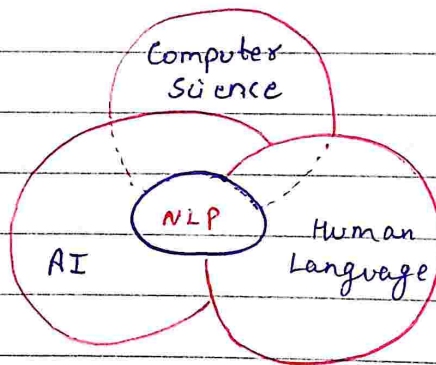 Computer
Science
NLP
AI
Human
Language